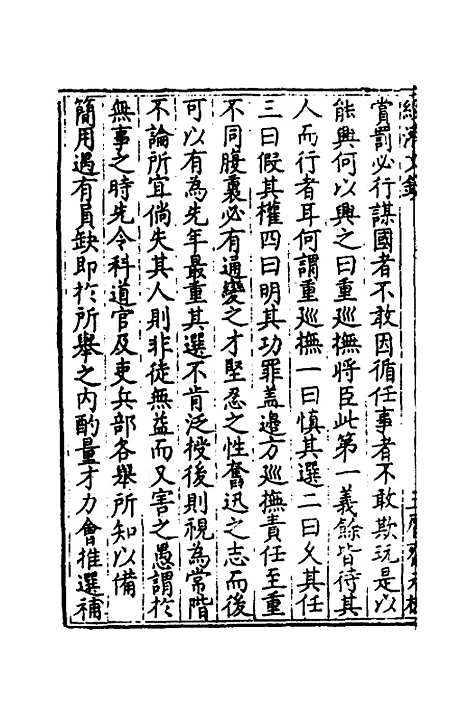 經濟文錄
賞罰必行謀國者不敢因循任事者不敢欺玩是以
能興何以興之曰重廵撫將臣此第一義餘皆待其
人而行者耳何謂重廵撫一曰慎其選二曰久其任
三曰假其權四曰明其功罪盖邊方廵撫責任至重
不同腹裏必有通變之才堅忍之性奮迅之志而後
可以有為先年最重其選不肯泛授後則視為常階
不論所宜倘失其人則非徒無益而又害之愚謂於
無事之時先令科道官及吏兵部各舉所知以備
簡用遇有員缺即於所舉之内酌量才力會推選補